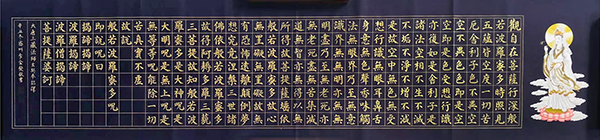 觀自在菩薩行深般
若波羅蜜多時照見
五蘊皆空度一切苦
厄舍利子色不異空
空不異色色即是空
空即是色受想行識
亦復如是舍利子是
諸法空相不生不滅
不垢不淨不增不減
是故空中無色無受
想行識無眼耳鼻舌
身意無色聲香味觸
法無眼界乃至無意
識界無無明亦無無
明盡乃至無老死亦
無老死盡無苦集滅
道無智亦無得以無
所得故菩提薩埵依
般若波羅蜜多故心
無罣礙無罣礙故無
有恐怖遠離顛倒夢
想究竟涅槃三世諸
佛依般若波羅蜜多
故得阿耨多羅三藐
三菩提故知般若波
羅蜜多是大神咒是
大明咒是無上咒是
無等等咒能除一切
苦真實不虛故說
般若波羅蜜多咒
即說咒曰
揭諦揭諦
波羅揭諦
波羅僧揭諦
菩提薩婆訶
大唐三藏法師玄奘奉詔譯